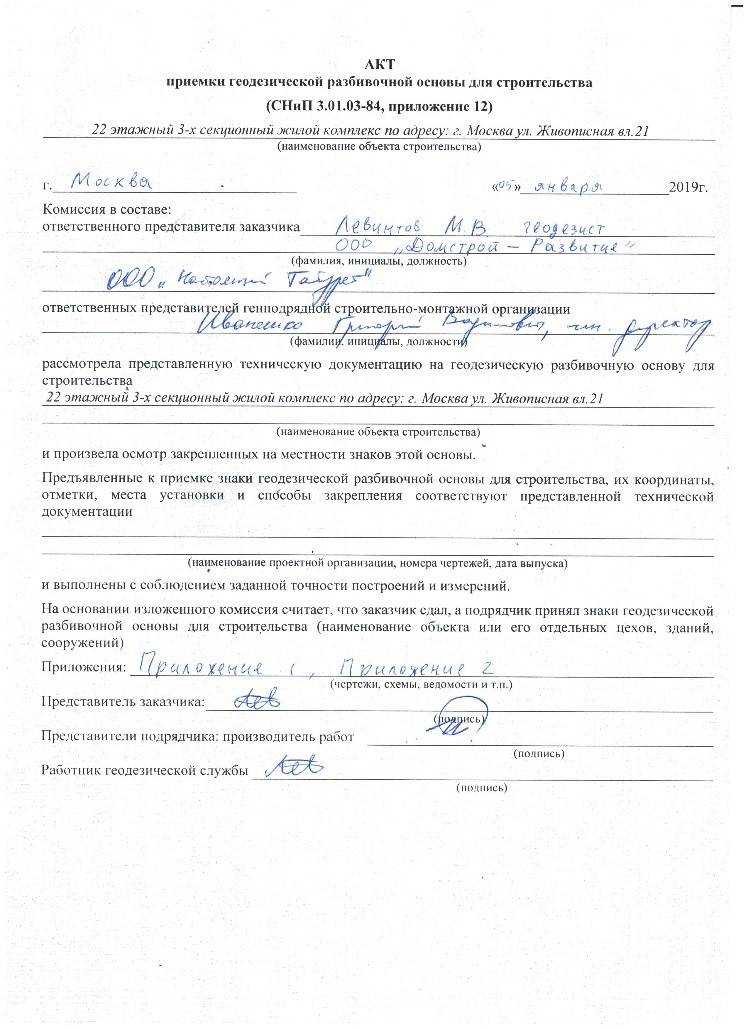 АКТ
приемки геодезической разбивочной основы для строительства
(СНиП 3.01.03-84, приложение 12)
22 этажный 3-х секционный жилой комплекс по адресу: г. Москва ул. Живописная вл.21
(наименование объекта строительства)
г. Москва «05» января 2019г.
Комиссия в составе:
ответственного представителя заказчика Левинтов М.В. геодезист
ООО „Домстрой – Развитие"
(фамилия, инициалы, должность)
ООО „
ответственных представителей генподрядной строительно-монтажной организации
Иваненко Григорий Вадимович, ген. директор
(фамилии, инициалы, должности)
рассмотрела представленную техническую документацию на геодезическую разбивочную основу для
строительства
22 этажный 3-х секционный жилой комплекс по адресу: г. Москва ул. Живописная вл.21
(наименование объекта строительства)
и произвела осмотр закрепленных на местности знаков этой основы.
Предъявленные к приемке знаки геодезической разбивочной основы для строительства, их координаты,
отметки, места установки и способы закрепления соответствуют представленной технической
документации
(наименование проектной организации, номера чертежей, дата выпуска)
и выполнены с соблюдением заданной точности построений и измерений.
На основании изложенного комиссия считает, что заказчик сдал, а подрядчик принял знаки геодезической
разбивочной основы для строительства (наименование объекта или его отдельных цехов, зданий,
сооружений)
Приложения: Приложение 1, Приложение 2
(чертежи, схемы, ведомости и т.п.)
Представитель заказчика:
(подпись)
Представители подрядчика: производитель работ
(подпись)
Работник геодезической службы
(подпись)